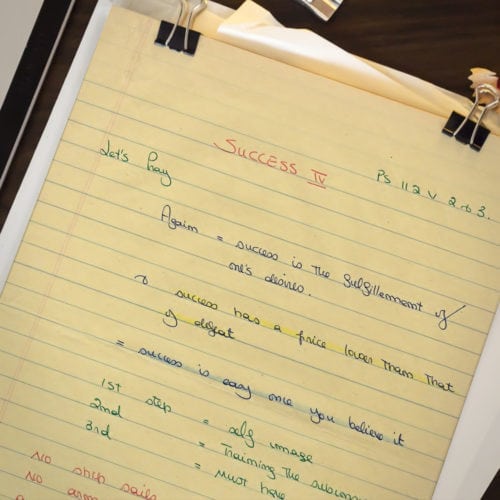 SUCCESS IV
Let's Pray
Ps 112 V 2 to 3.
Again = success is The fulfillment of
one's desires.
success has a price lower Than That
of defeat
= success is easy once you believe it
1st step = self image
2nd = Training The subcons
3rd = Must have
NO ship sails
NO